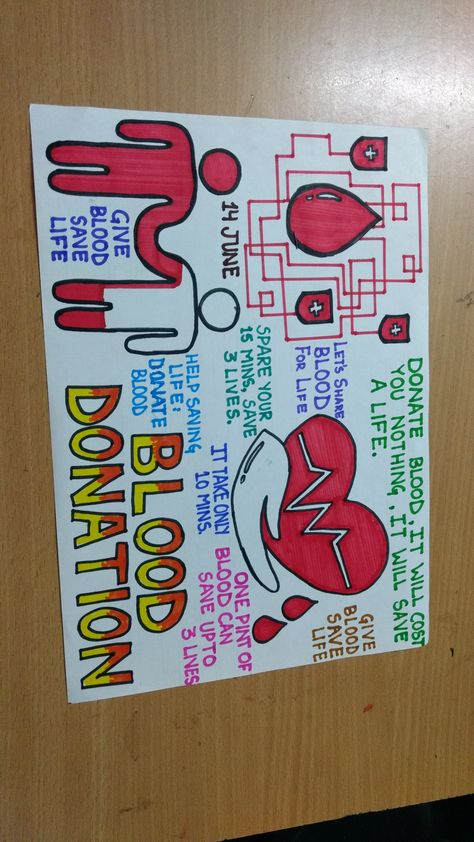 DONATE BLOOD, IT WILL COST
YOU NOTHING, IT WILL SAVE
A LIFE.
LET'S SHARE
BLOOD
FOR LIFE
GIVE
BLOOD
SAVE
LIFE
14 JUNE
SPARE YOUR
15 MINS, SAVE
3 LIVES.
IT TAKE ONLY
10 MINS.
ONE PINT OF
BLOOD CAN
SAVE UPTO
3 LIVES
HELP SAVING
LIFE:
DONATE
BLOOD
GIVE
BLOOD
SAVE
LIFE
BLOOD
DONATION